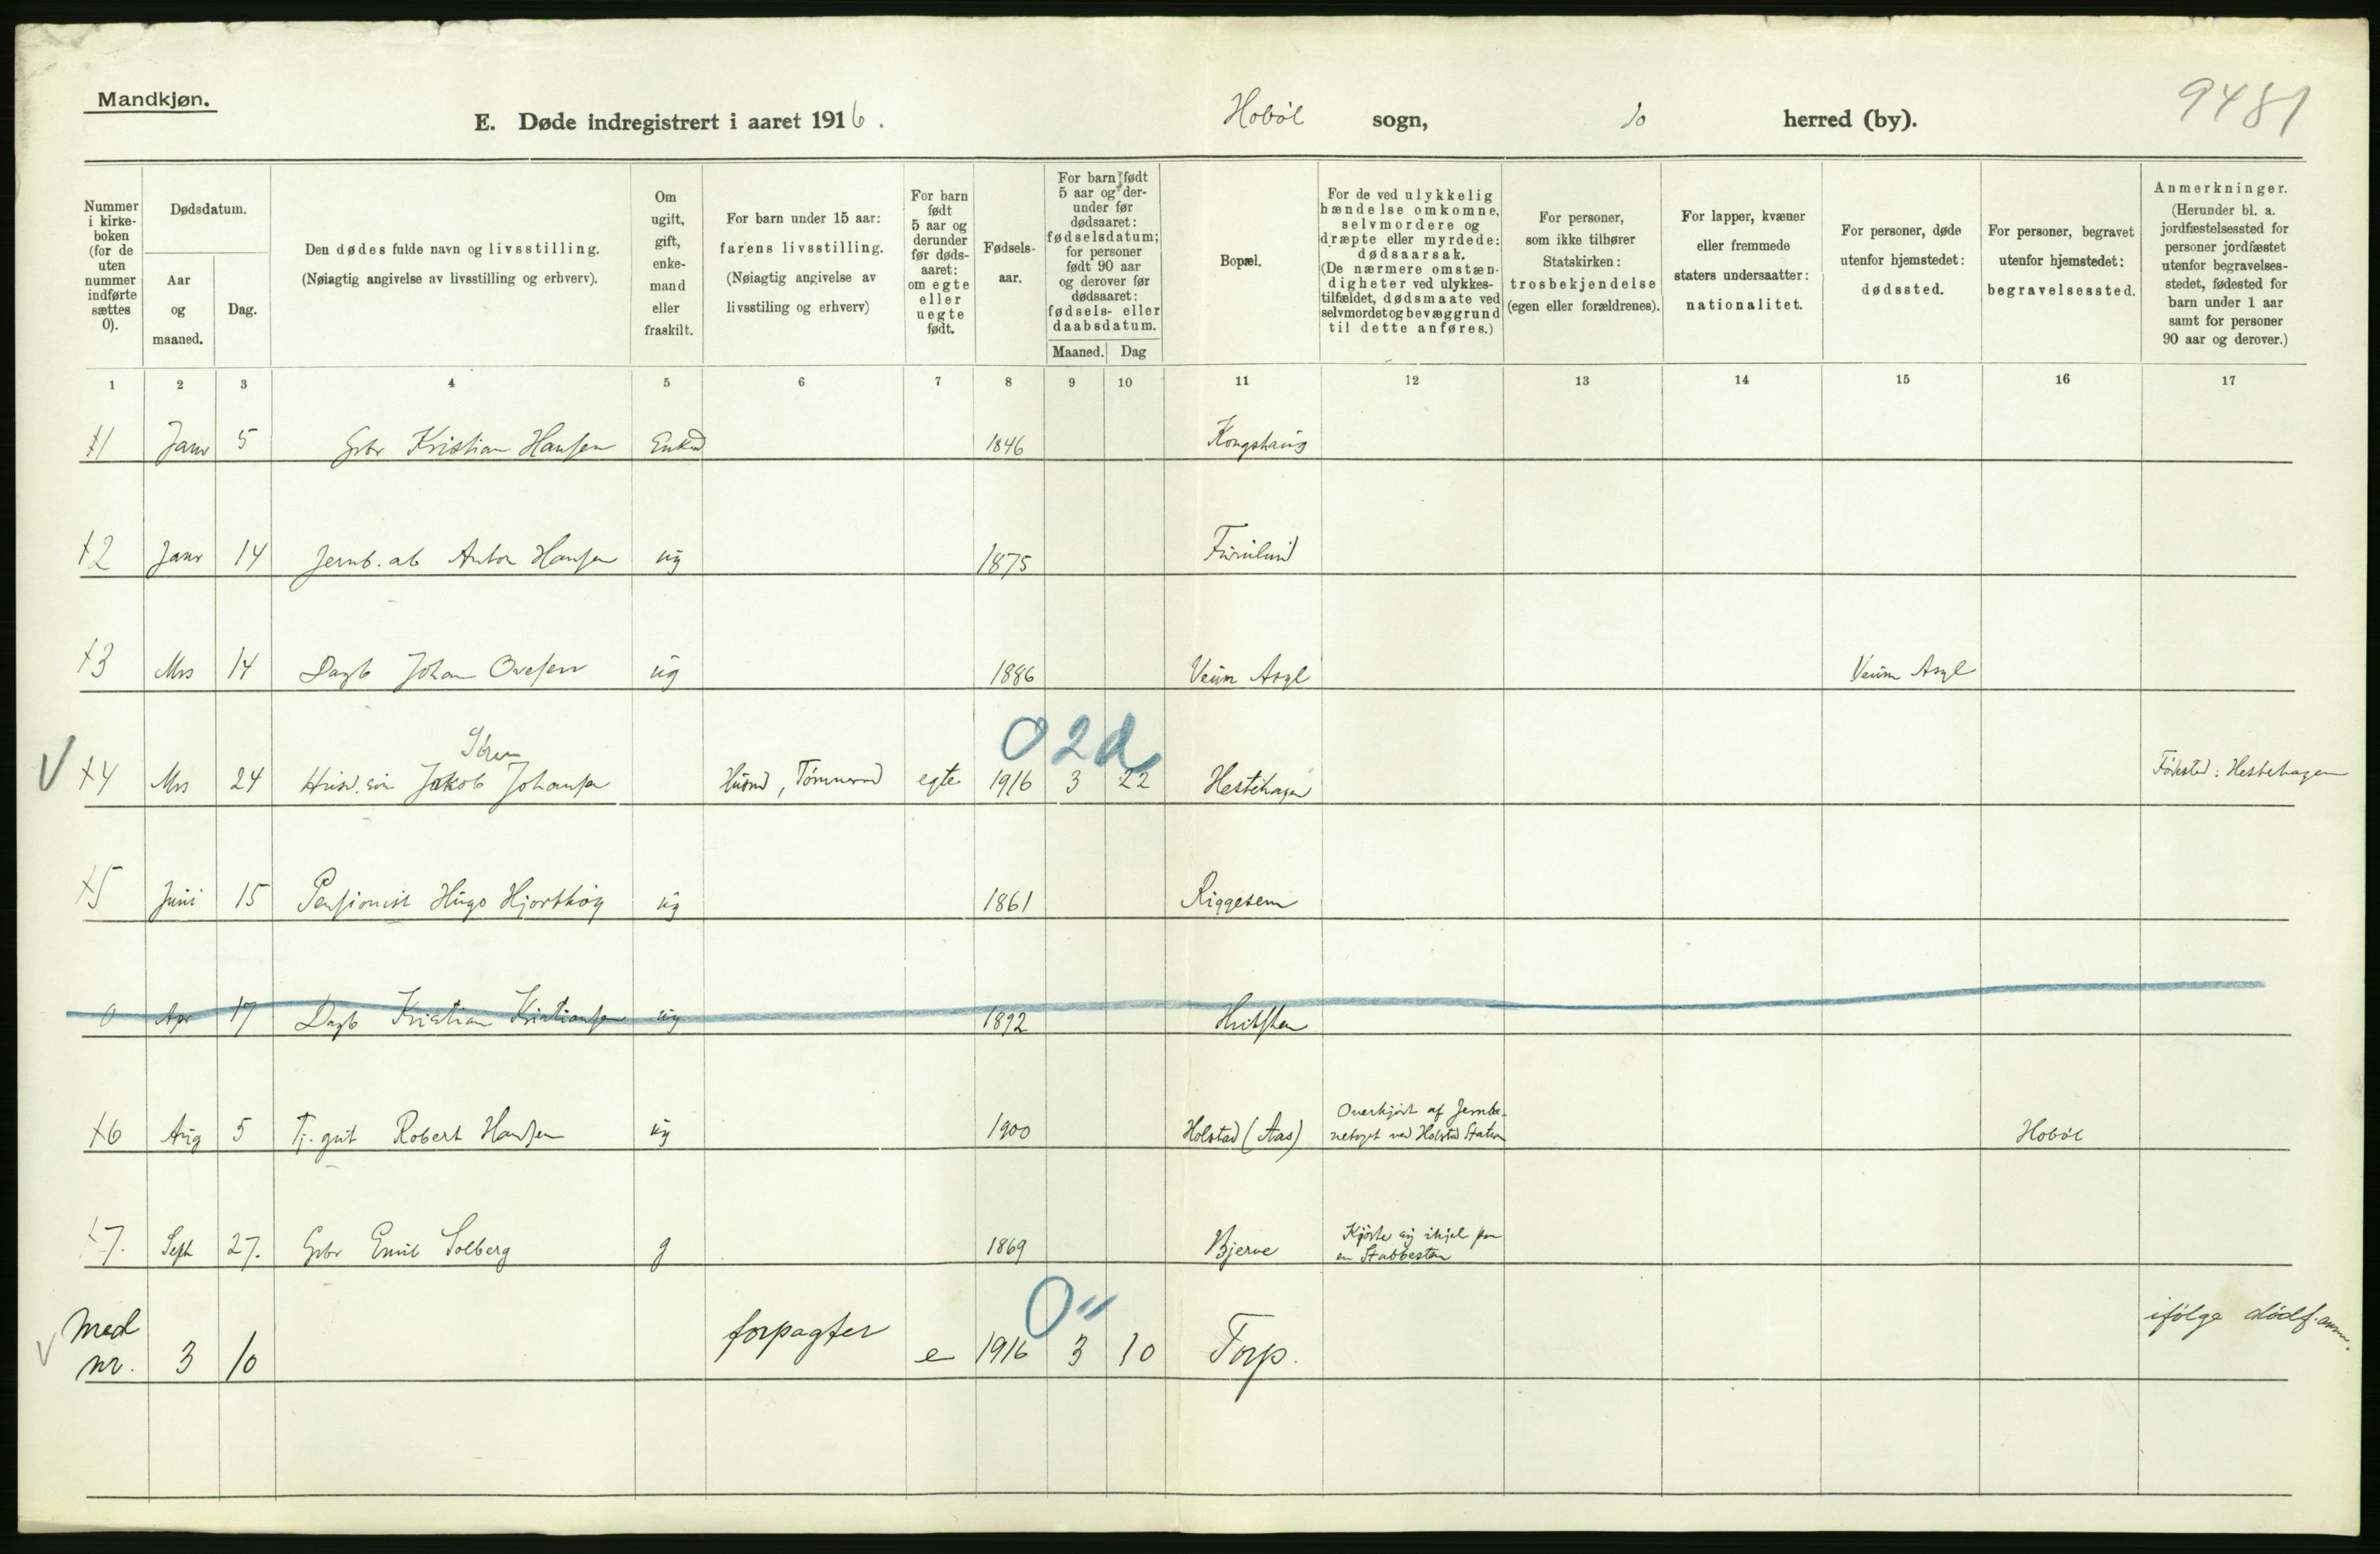 Mandkjøn.
9481
E. Døde indregistrert i aaret 1916. Hobøl sogn, do herred (by).
Nummer i kirke-boken (for de uten nummer indførte sættes 0).
Dødsdatum.
Aar og maaned.
Dag.
Den dødes fulde navn og livsstilling.
(Nøiagtig angivelse av livsstilling og erhverv).
Om ugift, gift, enke-mand eller fraskilt.
For barn under 15 aar:
farens livsstilling.
(Nøiagtig angivelse av livsstiling og erhverv)
For barn født 5 aar og derunder før døds-aaret: om egte eller uegte født.
Fødsels-aar.
For barn født 5 aar og der-under før dødsaaret: fødselsdatum; for personer født 90 aar og derover før dødsaaret: fødsels- eller daabsdatum.
Maaned. Dag
Bopæl.
For de ved ulykkelig hændelse omkomne, selvmordere og dræpte eller myrdede: dødsaarsak.
(De nærmere omstæn-digheter ved ulykkes-tilfældet, dødsmaate ved selvmordet og bevæggrund til dette anføres.)
For personer, som ikke tilhører Statskirken: trosbekjendelse (egen eller forældrenes).
For lapper, kvæner eller fremmede staters undersaatter: nationalitet.
For personer, døde utenfor hjemstedet: dødssted.
For personer, begravet utenfor hjemstedet: begravelsessted.
Anmerkninger.
(Herunder bl. a. jordfæstelsessted for personer jordfæstet utenfor begravelses-stedet, fødested for barn under 1 aar samt for personer 90 aar og derover.)
1 2 3 4 5 6 7 8 9 10 11 12 13 14 15 16 17
1 Janr 5 Gbr Kristian Hansen Enkm 1846 Kongshaug
2 Janr 14 Jernb. arb Anton Hansen ug 1875 Furulund
3 Mrs 14 Dagb Johan Ovesen ug 1886 Veum Asyl Veum Asyl
Sten
0 2 d
V 4 Mrs 24 Husm. søn Jakob Johansen Husmd, Tømmermd egte 1916 3 22 Hestehagen Fødested: Hestehagen
5 Juni 15 Pensionist Hugo Hjorthøy ug 1861 Riggesem
0 Apr 17 Dagb Kristian Kristiansen ug 1892
6 Aug 5 Tj. gut Robert Hansen ug 1900 Holstad (Aas) Overkjørt af Jernba-
netoget ved Holstad Station Hobøl
7. Sept 27. Gbr Emil Solberg g 1869 Bjerve Kjørte sig ihjel paa
en Stabbesten
0 "
V Med
nr. 3 10 forpagter e 1916 3 10 Torp. ifølge dødf. anm.